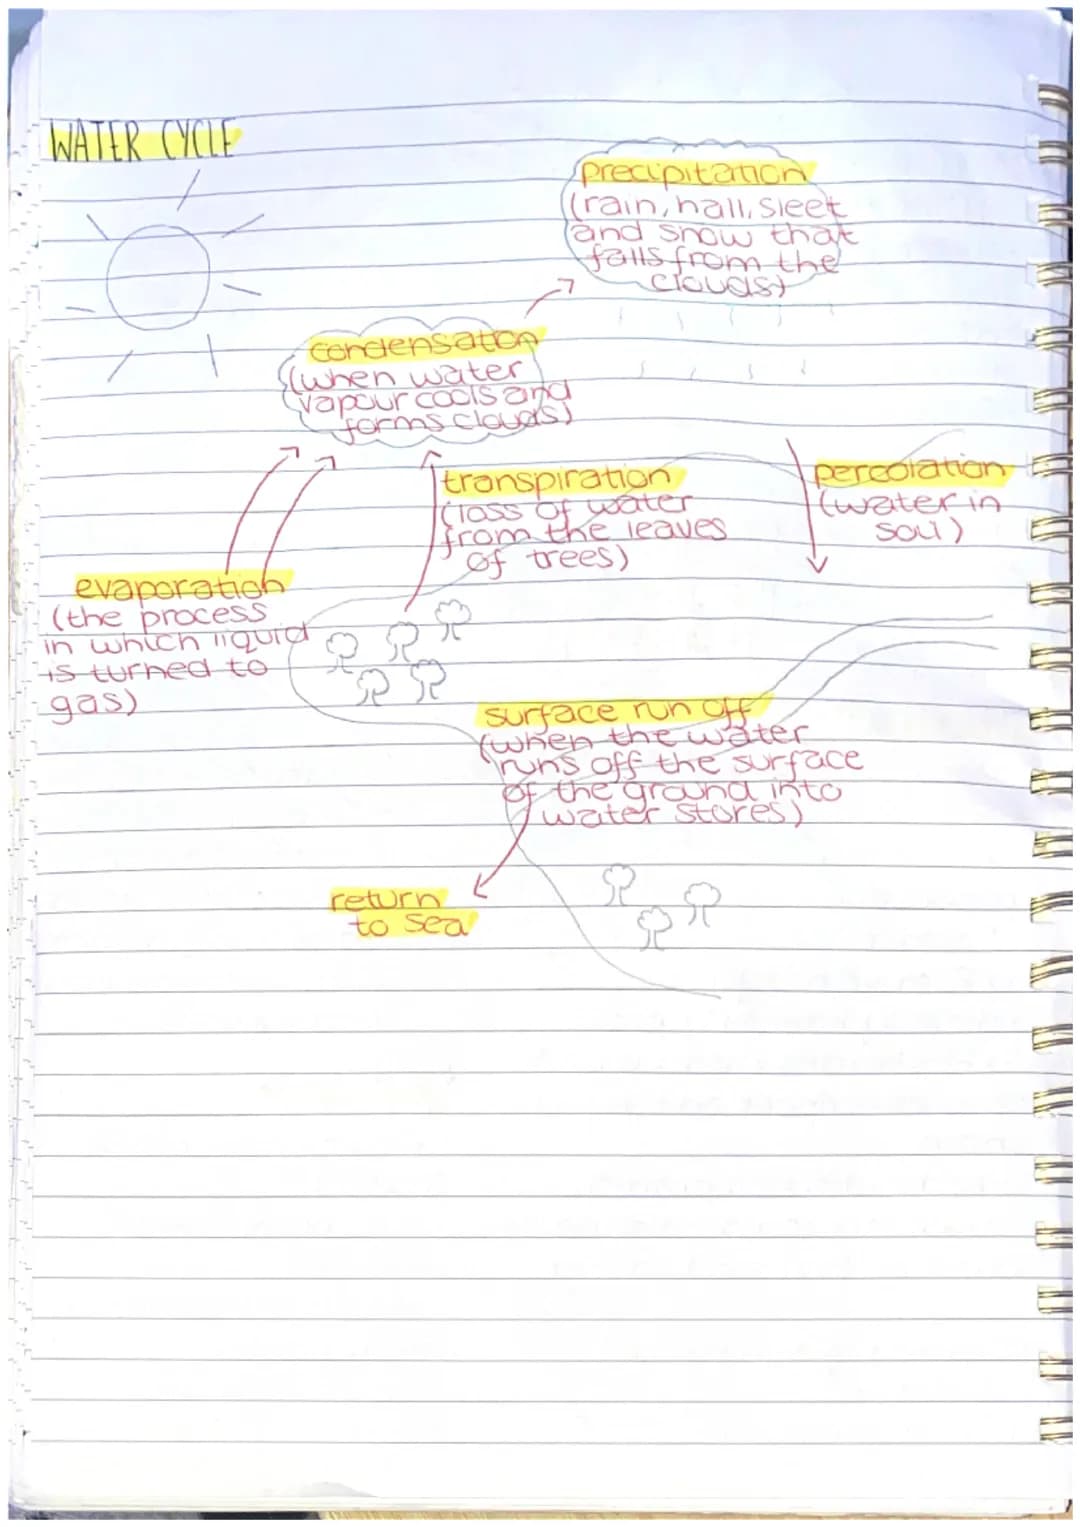 WATER CYCLE
precipitation
(rain, hail, sleet
and snow that
falls from the
clouds)
condensation
(when water
vapour cools and
forms clouds)
transpiration
(loss of water
from the leaves
of trees)
percolation
(water in
soil)
evaporation
(the process
in which liquid
is turned to
gas)
surface run off
(when the water
runs off the surface
of the ground into
water stores)
return
to sea